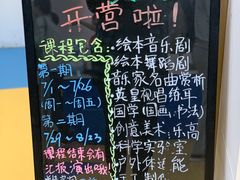 开营啦!
课程包含:
第一期
7/1~7/26
(周一~周五)
第二期
7/29~8/23
课程结束会有
汇报演出哦!
绘本音乐剧
绘本舞蹈剧
音乐家名曲赏析
英皇视唱练耳
国学(国画,书法)
创意美术,乐高
科学实验室
户外体适能
手工制作